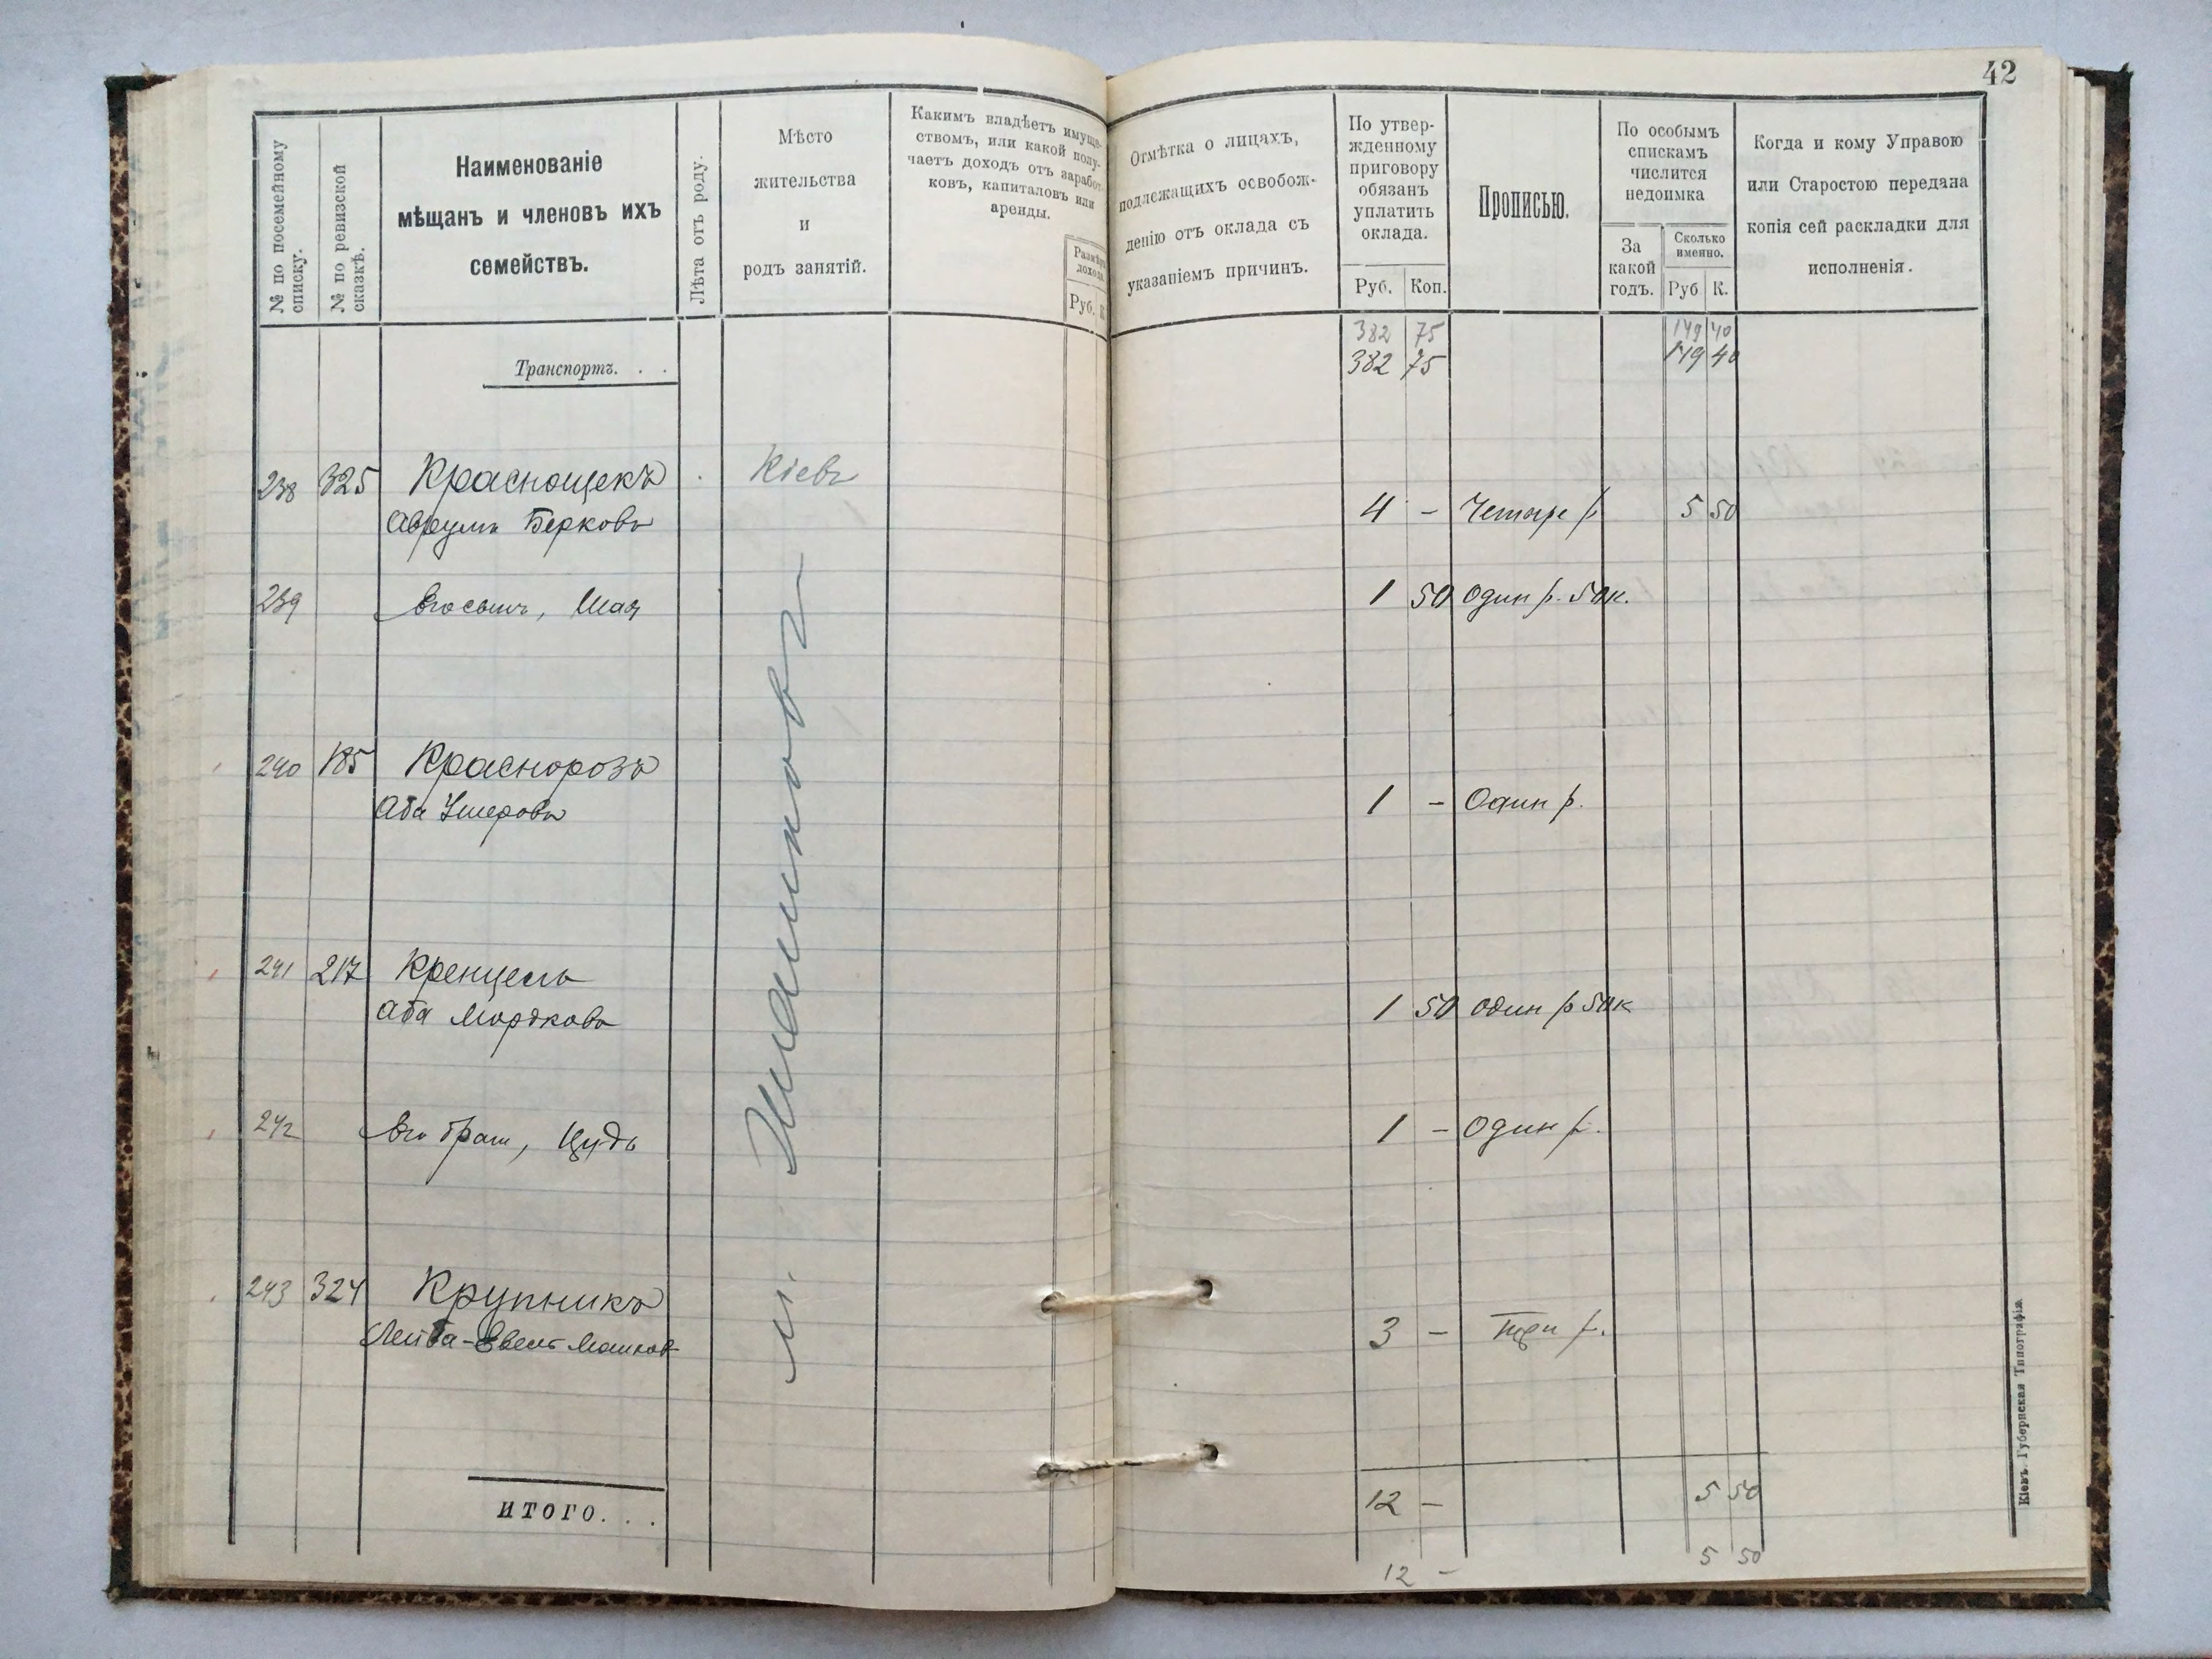 42
№ по посемейному
списку.
№ по ревизской
сказкѣ.
Наименованіе
мѣщанъ и членовъ ихъ
семействъ.
Лѣта отъ роду.
Мѣсто
жительства
и
родъ занятій.
Какимъ владѣетъ имуще-
ствомъ, или какой полу-
чаетъ доходъ отъ заработ-
ковъ, капиталовъ или
аренды.
Размѣръ
дохода
Руб. К
Отмѣтка о лицахъ,
подлежащихъ освобож-
денію отъ оклада съ
указаніемъ причинъ.
По утвер-
жденному
приговору
обязанъ
уплатить
оклада.
Руб. Коп.
Прописью.
По особымъ
спискамъ
числится
недоимка
За
какой
годъ.
Сколько
именно.
Руб К.
Когда и кому Управою
или Старостою передана
копія сей раскладки для
исполненія.
382 75 149 40
Транспортъ. . . 382 75 149 40
238 325 Краснощекъ Кіевъ
Аврумъ Берковъ 4 - Четыре р 5 50
239 Его сынъ, Шая 1 50 Один р. 50к.
240 185 Краснорозъ
Аба Ушеровъ 1 - Один р.
241 217 Кренцель
Аба Мордковъ 1 50 один р 50к
242 Его брат, Цудь 1 - Один р.
243 324 Крупникъ
Лейба-Евель Машков 3 - Три р.
м.
ИТОГО. . . 12 - 5 50
12 - 5 50
Кіевъ. Губернская Типографія.